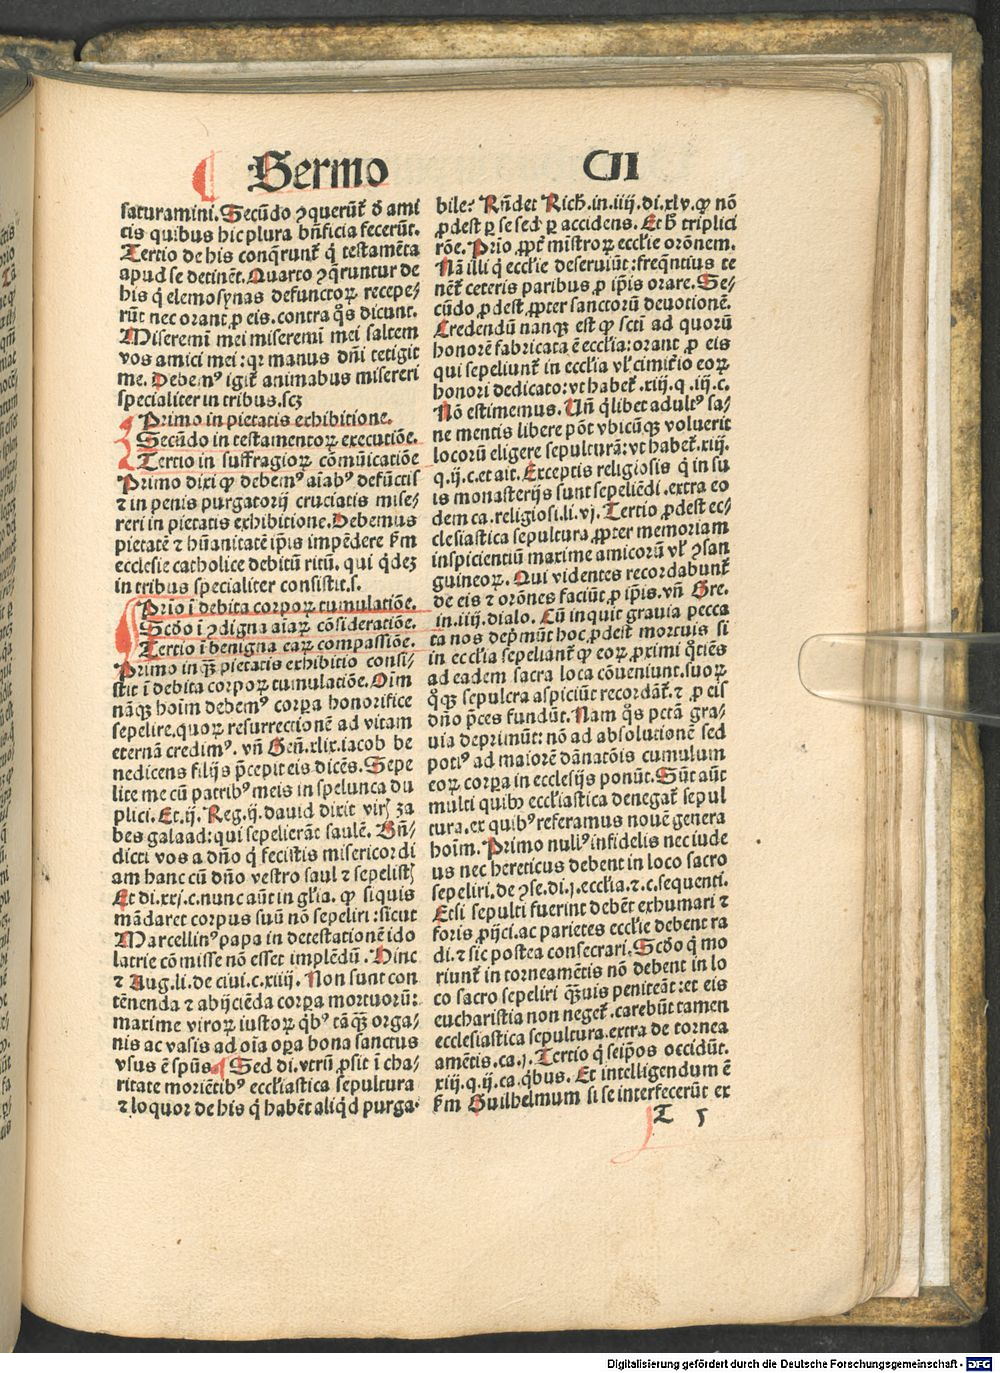 Sermo CII
saturamini. Secūdo ꝯquerūt᷑ ď ami
cis quibus hic plura bn̄ficia fecerūt.
Tertio de his conq̄runt᷑ q̇ testamēta
apud se detinēt. Quarto ꝯq̄runtur de
his q̇ elemosynas defunctoꝝ recepe-
rūt nec orant ꝓ eis. contra q̊s dicunt.
Miseremī mei miseremī mei saltem
vos amici mei: qꝛ manus dn̄i tetigit
me. Debemꝰ igit᷑ animabus misereri
specialiter in tribus. scꝫ
Primo in pietatis exhibitione.
Secūdo in testamentoꝝ executiōe.
Tertio in suffragioꝝ cōmūicatiōe
Primo dixi ꝙ debemꝰ aīabꝰ defūctis
⁊ in penis purgatorij cruciatis mise-
reri in pietatis exhibitione. Debemus
pietatē ⁊ hūanitatē ip̄is impēdere ẜm
ecclesie catholice debitū ritū. qui q̇deꝫ
in tribus specialiter consistit. s.
Prīo ī debita corpoꝝ tumulatiōe.
Scd̄o ī ꝯdigna aīaꝝ cōsideratiōe.
Tertio ī benigna eaꝝ compassiōe.
Primo inqᷓꝫ pietatis exhibitio consi-
stit ī debita corpoꝝ tumulatiōe. Oīm
nāqꝫ hoīm debemꝰ corꝑa honorifice
sepelire. quoꝝ resurrectionē ad vitam
eternā credimꝰ. vn̄ Gen̄. xlix. iacob be
nedicens filijs p̄cepit eis dicēs. Sepe
lite me cū patribꝰ meis in spelunca du
plici. Et. ij. Reg. ij. dauid dixit viris ia
bes galaad: qui sepelierāt saulē. Bn̄-
dicti vos a dn̄o q̇ fecistis misericordi
am hanc cū dn̄o vestro saul ⁊ sepelistis
Et di. xxj. c. nunc aūt in gl̄ia. ꝙ siquis
mādaret corpus suū nō sepeliri: sicut
Marcellinꝰ papa in detestationē ido
latrie cōmisse nō esset implēdū. Hinc
⁊ Aug. li. de ciui. c. xiiij. Non sunt con
tēnenda ⁊ abijciēda corꝑa mortuorū:
maxime viroꝝ iustoꝝ q̇bꝰ tāqᷓꝫ orga-
nis ac vasis ad oīa oꝑa bona sanctus
vsus ē spūs. Sed di. vtrū ꝓsit ī cha-
ritate moriētibꝰ eccl̄iastica sepultura
⁊ loquor de his q̇ habēt aliq̇d purga-
bile? Rn̄det Rich. in. iiij. di. xlv. ꝙ nō
ꝓdest ꝑ se sed ꝑ accidens. Et h̄ triplici
rōe. Prīo ꝓpt᷑ mīstroꝝ eccl̄ie orōnem.
Nā illi q̇ eccl̄ie deseruiūt: freq̄ntius te
nent᷑ ceteris paribus ꝓ ip̄is orare. Se-
cūdo ꝓdest ꝓpter sanctorū deuotionē.
Credendū nanqꝫ est ꝙ scti ad quorū
honorē fabricata ē eccl̄ia: orant ꝓ eis
qui sepeliunt᷑ in eccl̄ia vl̓ cimit̓io eoꝝ
honori dedicato: vt habet᷑. xiij. q. ij. c.
Nō estimemus. Vn̄ q̇libet adultꝰ sa-
ne mentis libere pōt vbicūqꝫ voluerit
locorū eligere sepulturā: vt habet᷑. xiij.
q. ij. c. et ait. Exceptis religiosis q̇ in su
is monasterijs sunt sepeliēdi. extra eo
dem ca. religiosi. li. vj. Tertio ꝓdest ec-
clesiastica sepultura ꝓpter memoriam
inspicientiū maxime amicorū vl̓ ꝯsan
guineoꝝ. Qui videntes recordabunt᷑
de eis ⁊ orōnes faciūt ꝓ ip̄is. vn̄ Gre.
in. iiij. dialo. Cū inquit grauia pecca
ta nos dep̄mūt hoc ꝓdest mortuis si
in eccl̄ia sepeliant᷑ ꝙ eoꝝ ꝓximi q̊tiēs
ad eadem sacra loca cōueniunt. suoꝝ
q̊qꝫ sepulcra aspiciūt recordāt᷑. ⁊ ꝓ eis
dn̄o p̄ces fundūt. Nam q̊s pctā gra-
uia deprimūt: nō ad absolutionē sed
potiꝰ ad maiorē dānatōis cumulum
eoꝝ corꝑa in ecclesijs ponūt᷑. Sūt aūt
multi quibꝫ eccl̄iastica denegat᷑ sepul
tura. ex quibꝰ referamus nouē genera
hoīm. Primo nullꝰ infidelis nec iude
us nec hereticus debent in loco sacro
sepeliri. de ꝯse. di. j. eccl̄ia. ⁊. c. sequenti.
Etsi sepulti fuerint debēt exhumari ⁊
foris ꝓijci. ac parietes eccl̄ie debent ra
di. ⁊ sic postea consecrari. Scd̄o q̇ mo
riunt᷑ in torneamētis nō debent in lo
co sacro sepeliri qᷓꝫuis peniteāt: et eis
eucharistia non neget᷑. carebūt tamen
ecclesiastica sepultura. extra de tornea
amētis. ca. j. Tertio q̇ seip̄os occidūt.
xiij. q. ij. ca. q̇bus. Et intelligendum ē
ẜm Guilhelmum si se interfecerūt ex
T 5
Digitalisierung gefördert durch die Deutsche Forschungsgemeinschaft - DFG